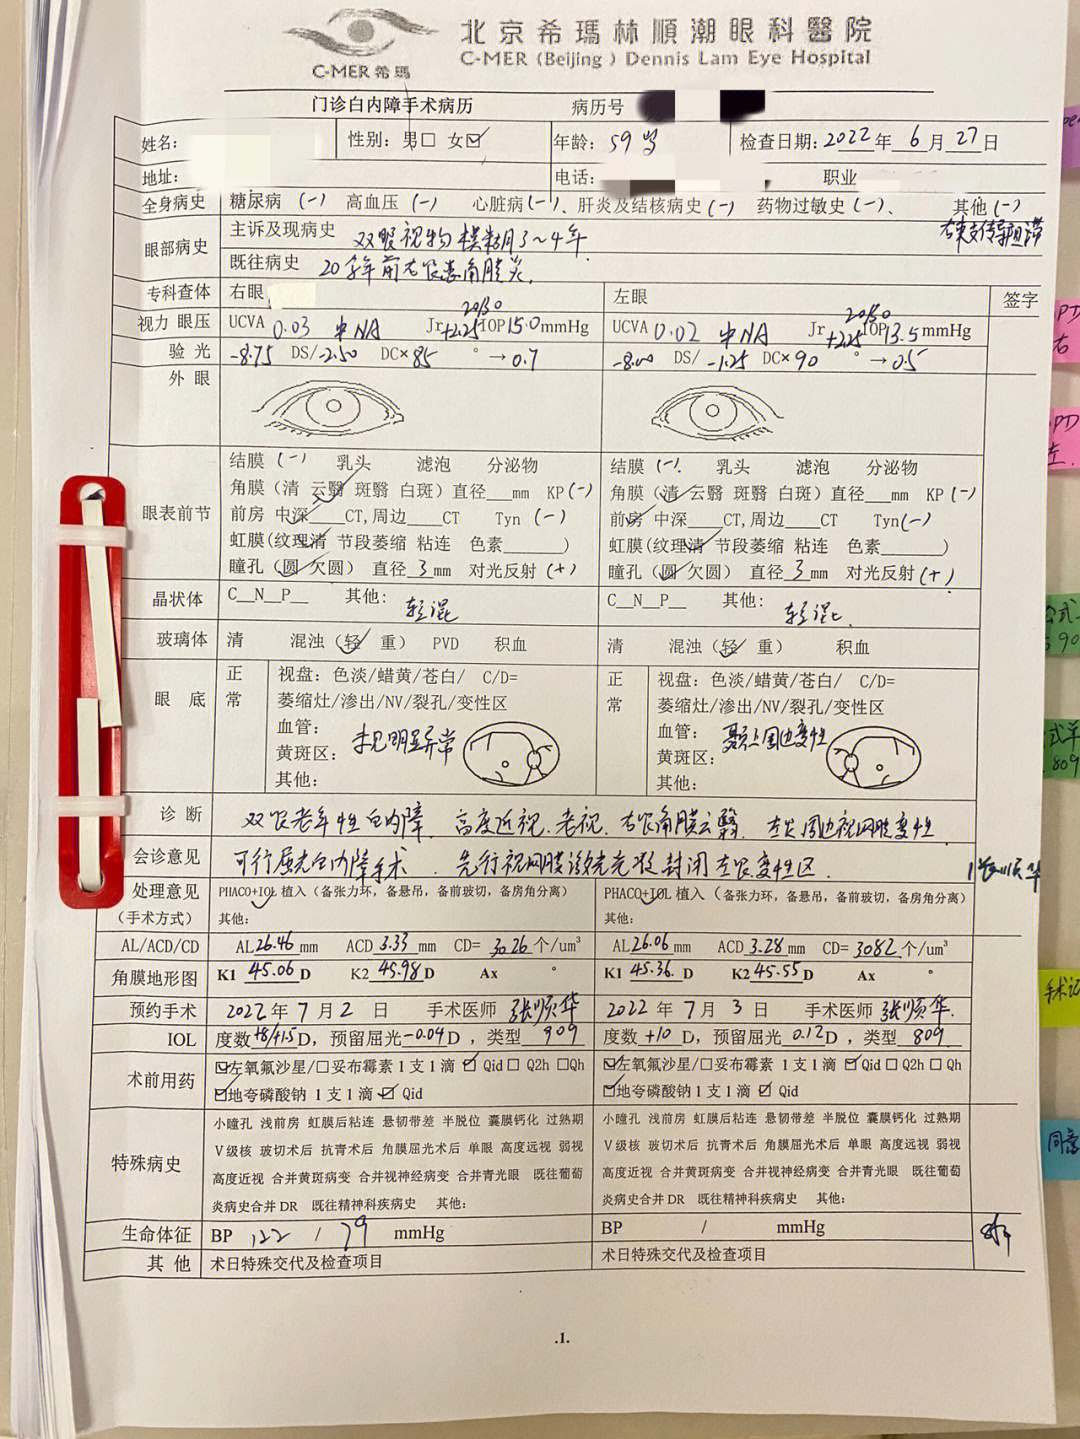 北京希瑪林順潮眼科醫院
C-MER (Beijing) Dennis Lam Eye Hospital
C-MER 希瑪
门诊白内障手术病历 病历号
姓名: 性别: 男□ 女☑ 年龄: 59岁 检查日期: 2022年 6月 27日
地址: 电话: 职业
全身病史 糖尿病 (-) 高血压 (-) 心脏病 (-)、肝炎及结核病史 (-) 药物过敏史 (-)、 其他 (-)
右束支传导阻滞
眼部病史 主诉及现病史 双眼视物模糊3~4年
既往病史 20多年前右眼患角膜炎.
专科查体 右眼 左眼 签字
视力 眼压 UCVA 0.03 中NA Jr +2.25 20/30 IOP 15.0 mmHg UCVA 0.02 中NA Jr +2.25 20/30 IOP 13.5 mmHg
验光 -8.75 DS/ -2.50 DC× 85 ° → 0.7 -8.00 DS/ -1.25 DC× 90 ° → 0.5
外眼
眼表前节 结膜 (-) 乳头 滤泡 分泌物 结膜 (-). 乳头 滤泡 分泌物
角膜 (清 云翳 斑翳 白斑) 直径___mm KP (-) 角膜 (清 云翳 斑翳 白斑) 直径___mm KP (-)
前房 中深____CT, 周边____CT Tyn (-) 前房 中深____CT, 周边____CT Tyn (-)
虹膜 (纹理清 节段萎缩 粘连 色素______) 虹膜 (纹理清 节段萎缩 粘连 色素______)
瞳孔 (圆 欠圆) 直径 3 mm 对光反射 (+) 瞳孔 (圆 欠圆) 直径 3 mm 对光反射 (+)
晶状体 C__N__P__ 其他: 轻混 C__N__P__ 其他: 轻混
玻璃体 清 混浊 (轻 重) PVD 积血 清 混浊 (轻 重) 积血
眼底 正常 视盘: 色淡/蜡黄/苍白/ C/D= 正常 视盘: 色淡/蜡黄/苍白/ C/D=
萎缩灶/渗出/NV/裂孔/变性区 萎缩灶/渗出/NV/裂孔/变性区
血管: 血管:
未见明显异常 周边变性
黄斑区: 黄斑区:
其他: 其他:
诊断 双眼老年性白内障. 高度近视. 老视. 右眼角膜云翳. 左眼周边视网膜变性
会诊意见 可行屈光白内障手术. 先行视网膜激光光凝封闭左眼变性区.
张顺华
处理意见 PHACO+IOL 植入 (备张力环, 备悬吊, 备前玻切, 备房角分离) PHACO+IOL 植入 (备张力环, 备悬吊, 备前玻切, 备房角分离)
(手术方式) 其他: 其他:
AL/ACD/CD AL 26.46 mm ACD 3.33 mm CD= 3026 个/um³ AL 26.06 mm ACD 3.28 mm CD= 3082 个/um³
角膜地形图 K1 45.06 D K2 45.98 D Ax ° K1 45.36 D K2 45.55 D Ax °
预约手术 2022年 7月 2 日 手术医师 张顺华 2022年 7月 3 日 手术医师 张顺华.
IOL 度数 +8/+1.5 D, 预留屈光 -0.04 D, 类型 909 度数 +10 D, 预留屈光 0.12 D, 类型 809
术前用药 ☑左氧氟沙星/□妥布霉素 1支1滴 ☑Qid □Q2h □Qh ☑左氧氟沙星/□妥布霉素 1支1滴 ☑Qid □Q2h □Qh
☑地夸磷酸钠 1支1滴 ☑Qid ☑地夸磷酸钠 1支1滴 ☑Qid
特殊病史 小瞳孔 浅前房 虹膜后粘连 悬韧带差 半脱位 囊膜钙化 过熟期 小瞳孔 浅前房 虹膜后粘连 悬韧带差 半脱位 囊膜钙化 过熟期
V级核 玻切术后 抗青术后 角膜屈光术后 单眼 高度远视 弱视 V级核 玻切术后 抗青术后 角膜屈光术后 单眼 高度远视 弱视
高度近视 合并黄斑病变 合并视神经病变 合并青光眼 既往葡萄 高度近视 合并黄斑病变 合并视神经病变 合并青光眼 既往葡萄
炎病史合并 DR 既往精神科疾病史 其他: 炎病史合并 DR 既往精神科疾病史 其他:
生命体征 BP 122 / 79 mmHg BP / mmHg
其他 术日特殊交代及检查项目 术日特殊交代及检查项目
.1.
PD
右
PD
左.
公式
90
式单
809
手术记
同意